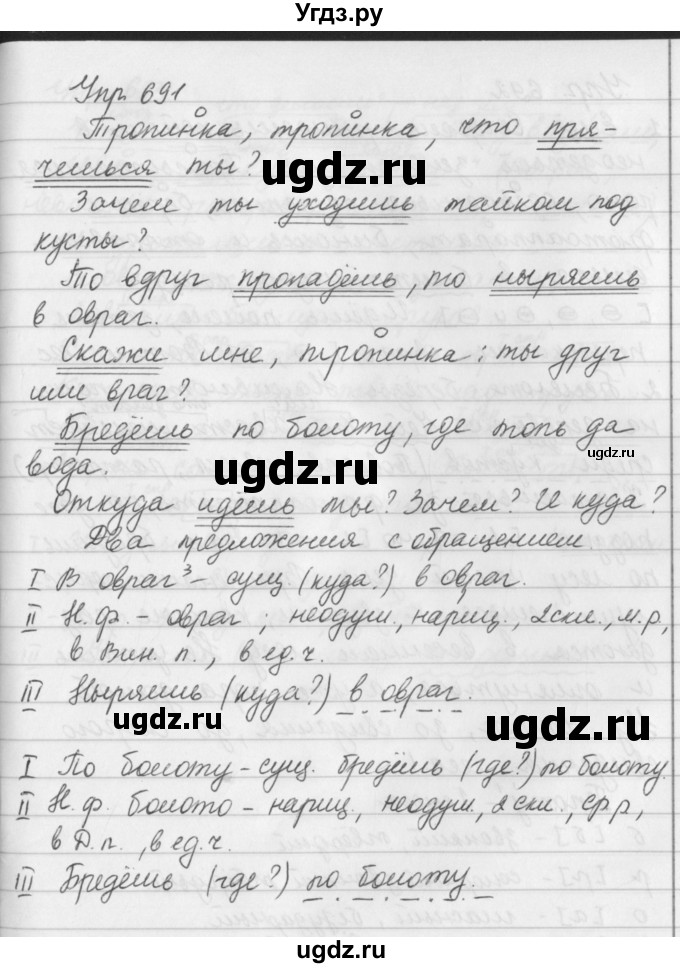 Угдз.ру
Упр. 691
Тропинка, тропинка, что пря-
чешься ты?
Зачем ты уходишь тайком под
кусты?
То вдруг пропадёшь, то ныряешь
в овраг.
Скажи мне, тропинка: ты друг
или враг?
Бредёшь по болоту, где топь да
вода.
Откуда идёшь ты? Зачем? И куда?
Два предложения с обращением
I В овраг³ – сущ (куда?) в овраг.
II Н.ф. – овраг; неодуш., нариц., 2 скл., м.р,
в Вин. п., в ед.ч.
III Ныряешь (куда?) в овраг.
I По болоту – сущ. бредёшь (где?) по болоту.
II Н.ф. болото – нариц., неодуш., 2 скл., ср.р,
в Д.п., в ед.ч.
III Бредёшь (где?) по болоту.
ugdz.ru
ugdz.ru
ugdz.ru
ugdz.ru
ugdz.ru
ugdz.ru
ugdz.ru